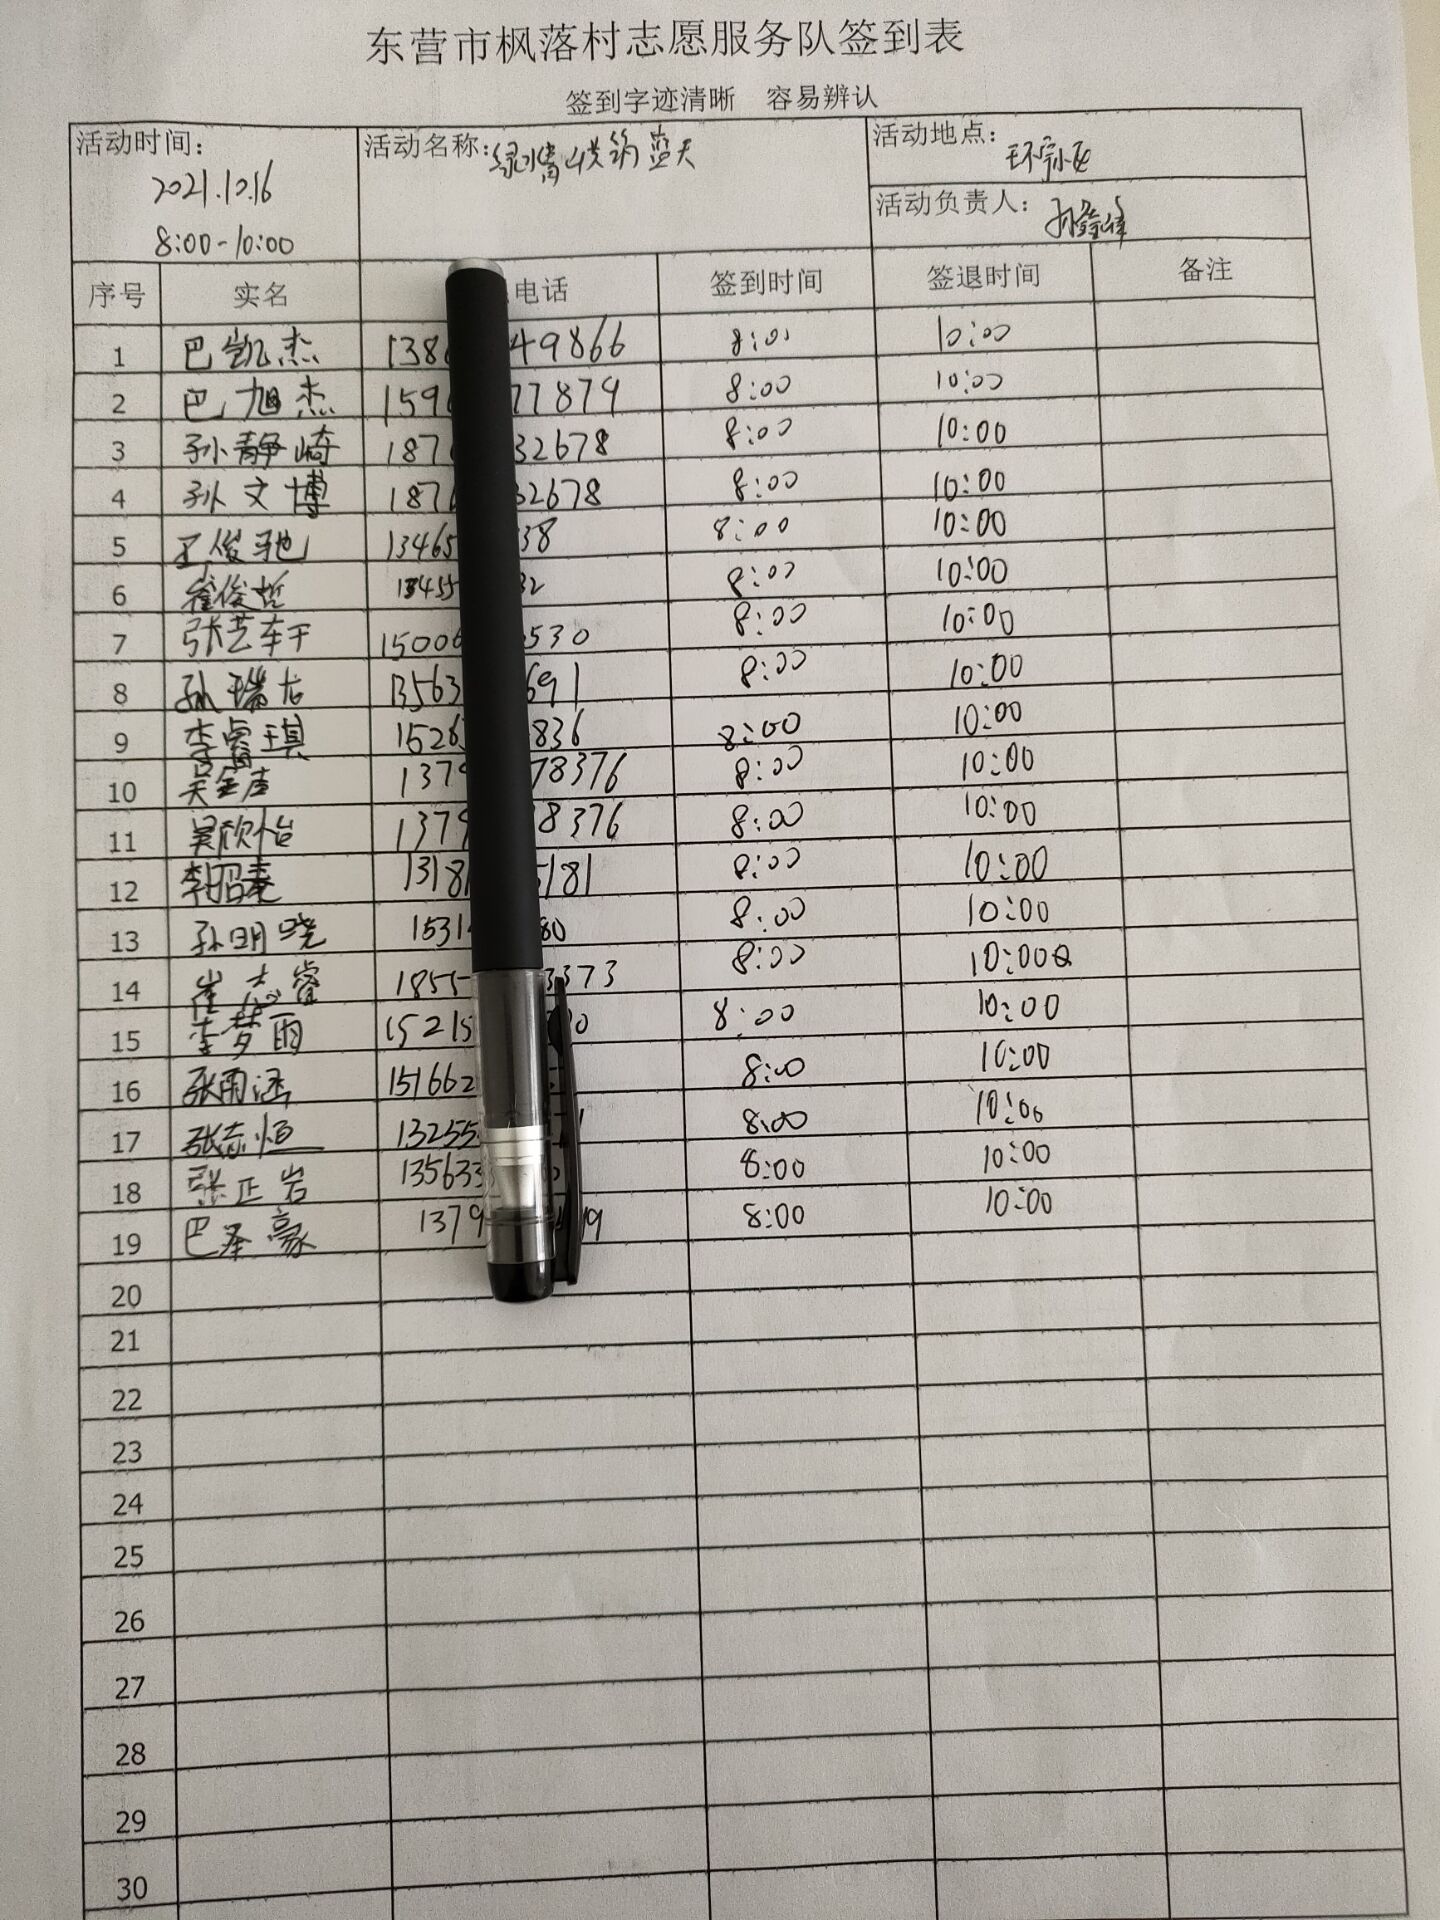 东营市枫落村志愿服务队签到表
签到字迹清晰 容易辨认
活动时间: 2021.10.16 8:00-10:00
活动名称: 绿水青山共筑蓝天
活动地点:
活动负责人: 孙
序号 实名 电话 签到时间 签退时间 备注
1 巴凯杰 138 49866 8:00 10:00
2 巴旭杰 159 77879 8:00 10:00
3 孙静崎 187 32678 8:00 10:00
4 孙文博 187 32678 8:00 10:00
5 王俊驰 13465 38 8:00 10:00
6 崔俊哲 13455 32 8:00 10:00
7 张艺 15006 530 8:00 10:00
8 孙瑞 13563 691 8:00 10:00
9 李睿琪 1526 836 8:00 10:00
10 吴 1379 78376 8:00 10:00
11 吴欣怡 1379 8376 8:00 10:00
12 李昭 1318 181 8:00 10:00
13 孙明晓 1531 80 8:00 10:00
14 崔志睿 1855 3373 8:00 10:00
15 李梦雨 15215 0 8:00 10:00
16 张雨涵 151662 8:00 10:00
17 张志恒 13255 8:00 10:00
18 张正岩 135633 8:00 10:00
19 巴泽豪 1379 19 8:00 10:00
20
21
22
23
24
25
26
27
28
29
30